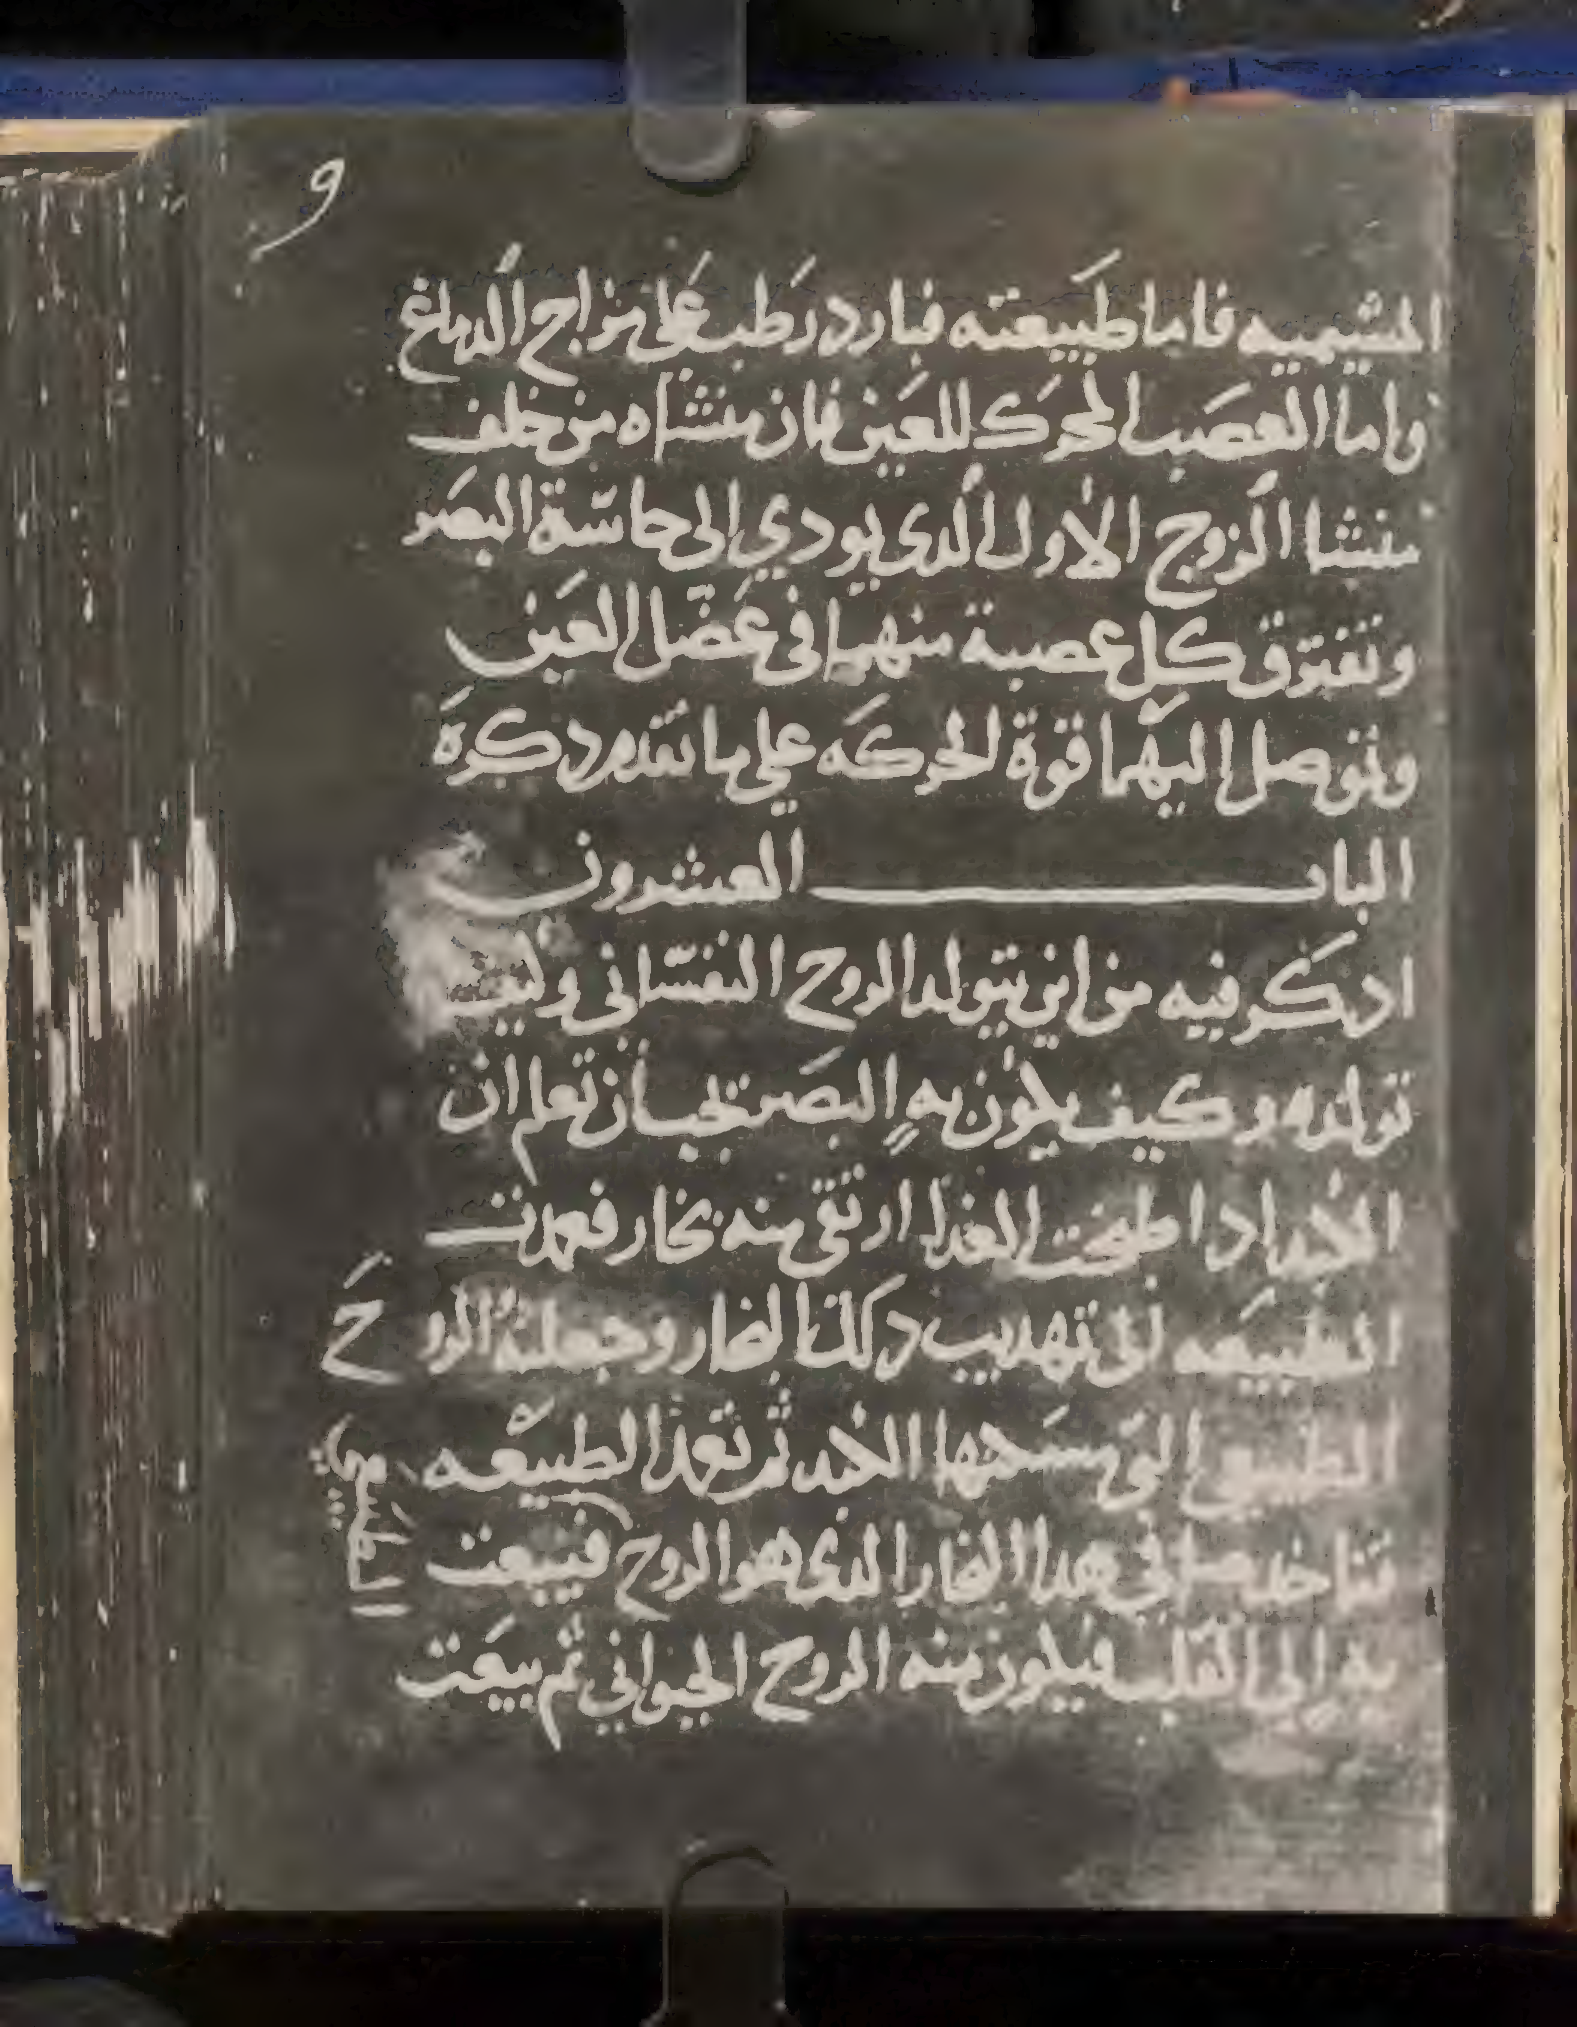 و
المشيميه فاما طبيعته فبارد رطب على مزاج الدماغ
واما العصب المحرك للعين فان منشاه من خلف
منشا الزوج الاول الدى يودي الى حاسة البصر
وتفترق كل عصبة منهما فى عضل العين
وتوصل اليهما قوة الحركه على ما تقدم دكره
الباب العشرون
ادكر فيه من اين يتولد الروح النفسانى وكيف
تولده وكيف يكون به البصر تجب ان تعلم ان
الكبد ادا طبخت الغدا ارتقى منه بخار فعمدت
الطبيعه الى تهديب دلك البخار وجعلته الروح
الطبيعي التى الكبد ثم تعد الطبيعه
هدا البخار الدى هو الروح فيبعت
به الى القلب فيكون منه الروح الحيواني ثم يبعت